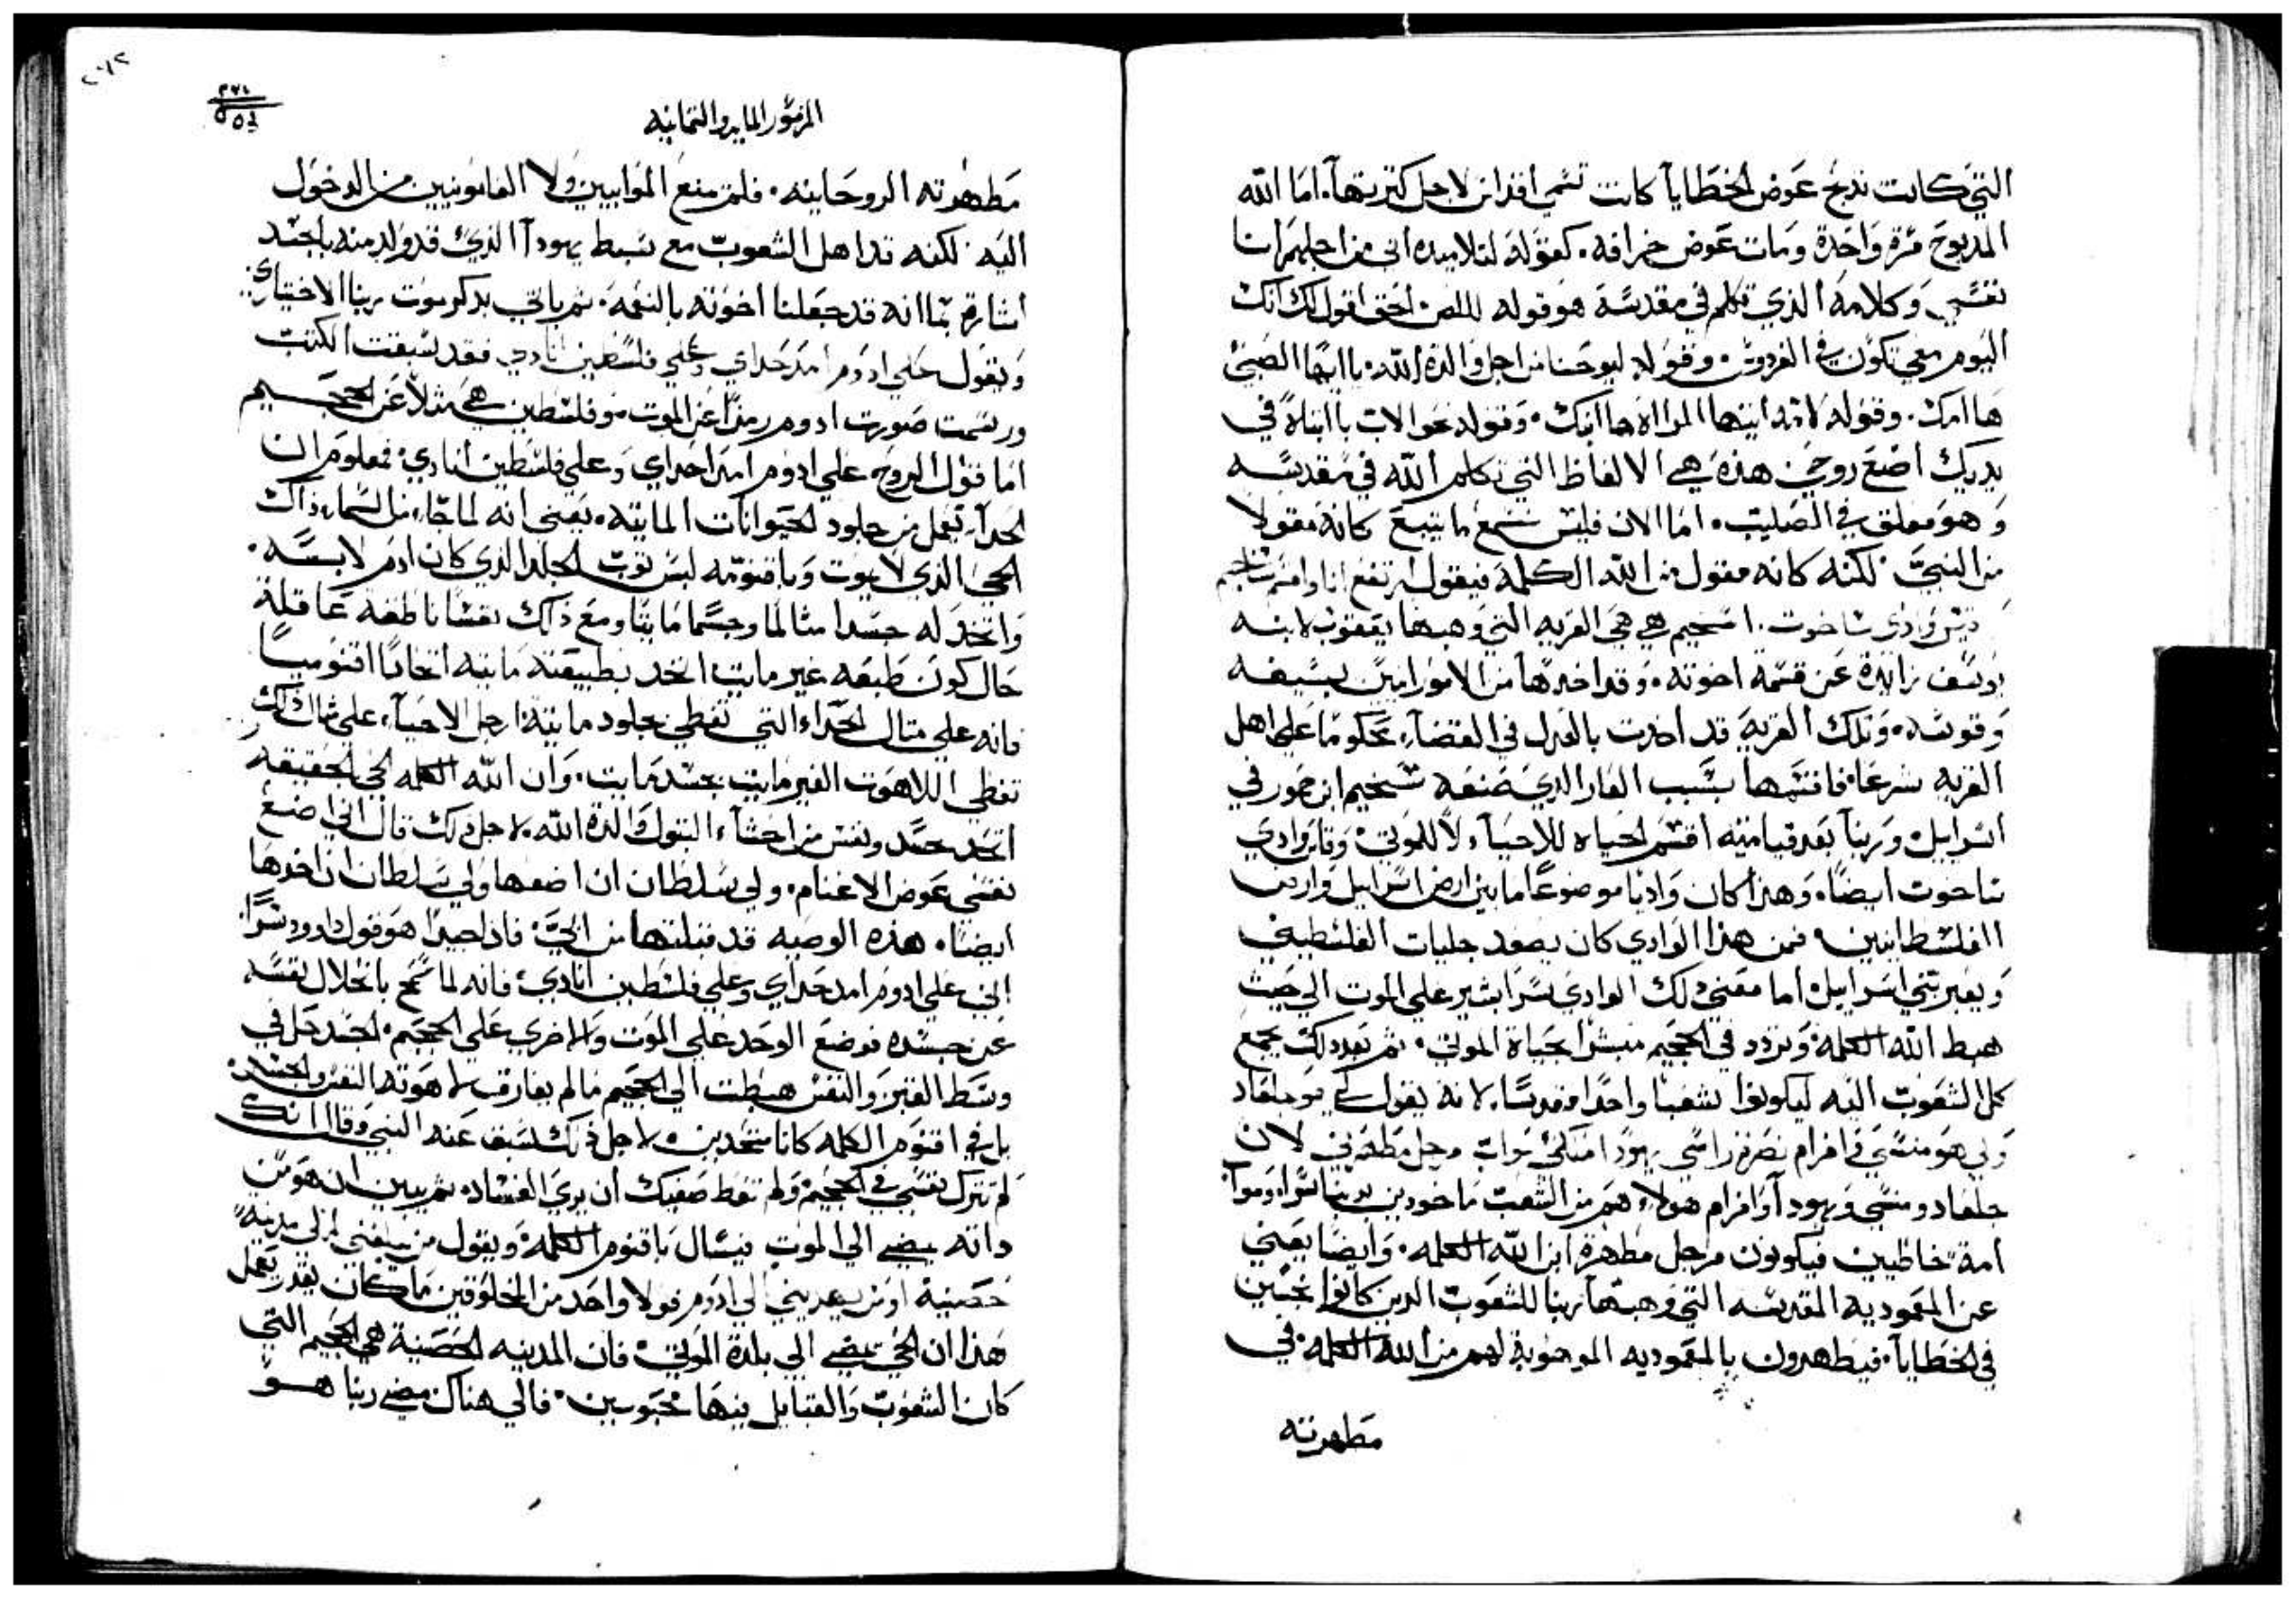 التي كانت تدبح عوض الخطايا كانت تسمي اقداس لاجل كثرتها. اما الله
المدبوح مرة واحدة ومات عوض خرافه. كقوله لتلاميده اني من اجلهم انا
نفسي وكلامه الذي تكلم في مقدسة هو قوله للص الحق اقول لك انك
اليوم معي تكون في الفردوس. وقوله ليوحنا من اجل والدة الله. يا ايها الصبي
ها امك. وقوله لامه ايتها المراه ها ابنك. وقوله نحو الاب يا ابتاه في
يديك اضع روحي. هذه هي الالفاظ التي تكلم الله في مقدسه
وهو معلق في الصليب. اما الان فليس نسمع ما يتبع كانه مقولا
من النبي. لكنه كانه مقول من الله الكلمة فيقول ارتفع انا واقسم شاخيم
وادي ساخوت. اسخيم هي هي القريه التي وهبها يعقوب لابنه
يوسف زايدة عن قسمة اخوته. وقد اخدها من الامورانيين بسيفه
وقوسه. وتلك القرية قد اخدت بالعدل في القضاء. محكوما على اهل
القريه سرعا. فاقتسمها بسبب العار الذي صنعه شخيم ابن حمور في
اسراييل. وربنا بعد قيامته اقسم الحياه للاحياء ولا للموتي. وقاس وادي
ساخوت ايضا. وهذا كان واديا موضوعا ما بين ارض اسراييل وارض
الفلسطانيين. فمن هذا الوادي كان يصعد جليات الفلسطيني
ويعير بني اسراييل. اما معني دلك الوادي سرا يشير علي الموت الي حيث
هبط الله الكلمة. وتردد في الجحيم مبشرا بحياة الموتي. ثم بعد دلك يجمع
كل الشعوب اليه ليكونوا شعبا واحدا مقدسا. لانه يقول لي هو جلعاد
ولي هو منسي وافرام نصرة راسي يهودا ملكي مواب مرجل مطهرتي لان
جلعاد ومنسي ويهودا وافرام هولاء هم من الشعب ماخودين بربنا سرا. وموآب
امة خاطيين فيكونون مرجل مطهرة ابن الله الكلمه. وايضا يعني
عن المعموديه المقدسه التي وهبها ربنا للشعوب الدين كانوا نجسين
في الخطايا. فيطهرون بالمعموديه الموهوبة لهم من الله الكلمه. في
مطهرته
المزمور المايه والثمانيه
مطهرته الروحانيه. فلم يمنع الموابيين ولا العامونيين من الدخول
اليه لكنه قد اهل الشعوب مع سبط يهودا الذي قد ولد منه بالجسد
بما انه قد جعلنا اخوته بالنعمه. ثم ياتي بدكر موت ربنا الاختياري
ويقول علي ادوم امد حداي وعلي فلسطين انادي فقد سبقت الكتب
ورسمت صورت ادوم رمزا عن الموت وفلسطين هي مثلا عن الجحيم
اما قول الروح علي ادوم امد احداي وعلي فلسطين انادي. فمعلوم ان
الحداء تعمل من جلود الحيوانات المايته. يعني انه لما جاء من السماء داك
الحي الذي لا يموت وباقنومه لبس ثوب الجلد الذي كان ادم لابسه.
واتخد له جسدا متالما وجسما مايتا ومع ذاك نفسا ناطقة عاقلة
حال كون طبعه غير مايت اتحد بطبيعته مايته اتحادا اقنوميا
فانه علي متال الحداء التي تغطي بجلود مايته ارجل الاحياء. علي متال دلك
تغطي اللاهوت الغير مايت بجسد مايت. وان الله الكلمه الحي الحقيقه
اتحد بجسد ونفس من احشاء البتول والدة الله. لاجل دلك قال اني اضع
نفسي عوض الاغنام. ولي سلطان ان اضعها ولي سلطان ان اخدها
ايضا. هذه الوصيه قد قبلتها من ابي. فادا جيدا هو قول داوود سرا
اني علي ادوم امد حداي وعلي فلسطين انادي. فانه لما سمح بانحلال نفسه
عن جسده فوضع الوحد علي الموت والاخري علي الجحيم. الجسد حل في
وسط القبر والنفس هبطت الي الجحيم فالم يفارق لاهوته النفس والجسد.
بل في اقنوم الكلمه كانا متحدين. لاجل دلك سبق عنه النبي وقال انك
لم تترك نفسي في الجحيم ولم تعط صفيك ان يري الفساد. ثم يبين ان هو من
داته يمضي الي الموت فيسال باقنوم الكلمه. ويقول من يبلغني الي مدينة
حصنية او من يهديني الي ادوم فولا واحد من المخلوقين ما كان يقدر يعمل
هذا ان الحي يمضي الي بلدة الموتي. فان المدينه الحصنية هي الجحيم التي
كان الشعوب والقبايل فيها محبوسين. فالي هناك مضي ربنا هو